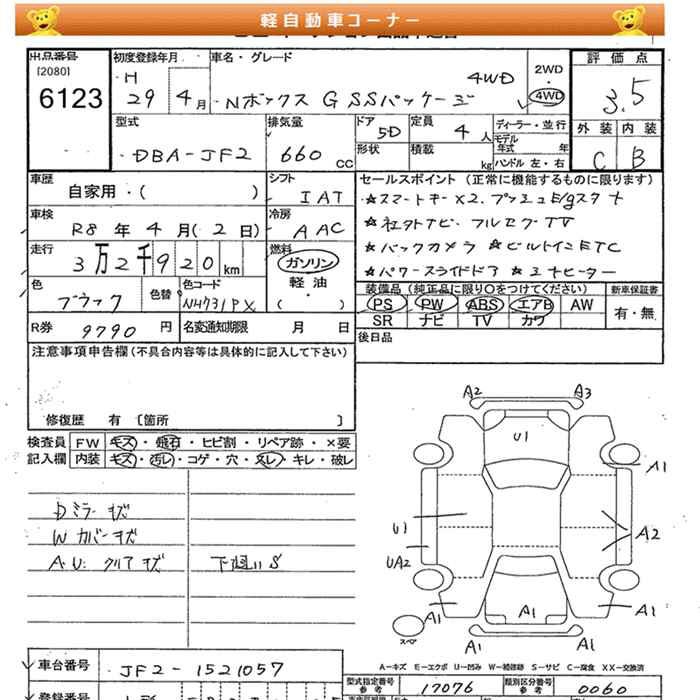 軽自動車コーナー
出品番号
[2080]
6123
初度登録年月
H
29 4月
車名・グレード
4WD
Nボックス G SSパッケージ
2WD
・
4WD
評価点
3.5
外装 内装
C B
型式
DBA-JF2
排気量
660 cc
ドア
5D
定員
4 人
形状
積載
kg
ディーラー・並行
モデル年式 年
ハンドル 左・右
車歴
自家用・( )
シフト
IAT
車検
R8 年 4 月( 2 日)
冷房
AAC
走行
3万2千920km
燃料
ガソリン
・
軽油
・
( )
色
ブラック
色替
色コード
NH731PX
R券
9790 円
名変通知期限 月 日
セールスポイント (正常に機能するものに限ります)
★スマートキー×2. プッシュE/gスタート
★社外ナビ・フルセグTV
★バックカメラ ★ビルトインETC
★パワースライドドア ★シートヒーター
装備品 (純正品に限り○をつけてください)
PS PW ABS エアB AW
SR ナビ TV カワ
新車保証書
有・無
後日品
注意事項申告欄 (不具合内容等は具体的に記入して下さい)
修復歴 有 〔箇所 〕
検査員
記入欄
FW キズ・飛石・ヒビ割・リペア跡・×要
内装 キズ・汚レ・コゲ・穴・スレ・キレ・破レ
Dミラーキズ
Wカバーキズ
A.U: クリアキズ
下廻りS
A2 A3
U1
A1
U1
A2
UA2
A1 A1 A1
スペア
A1 A1
A―キズ E―エクボ U―凹み W―補修跡 S―サビ C―腐食 XX―交換済
車台番号
JF2-1521057
型式指定番号
参考
17076
類別区分番号
参考
0060
登録番号